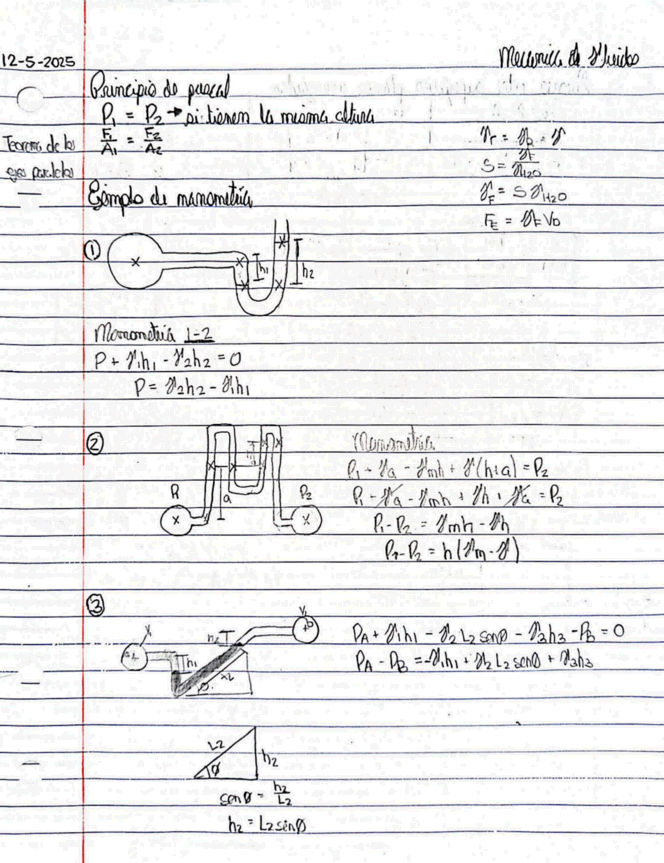 12-5-2025
Mecanica de Fluidos
Principio de pascal
P₁ = P₂ → si tienen la misma altura
F₁/A₁ = F₂/A₂
Teorema de los
ejes paralelos
S = γF/γH₂O
γF = S γH₂O
FE = γF VD
Ejmplo de manometria
①
h₁
h₂
Manometria 1-2
P + γ₁h₁ - γ₂h₂ = 0
P = γ₂h₂ - γ₁h₁
②
P₁
a
P₂
Manometria
P₁ - γa - γmh + γ(h+a) = P₂
P₁ - γa - γmh + γh + γa = P₂
P₁ - P₂ = γmh - γh
P₁ - P₂ = h(γm - γ)
③
h₁
PA + γ₁h₁ - γ₂ L₂ senØ - γ₃h₃ - PB = 0
PA - PB = -γ₁h₁ + γ₂ L₂ senØ + γ₃h₃
L₂
h₂
Ø
senØ = h₂/L₂
h₂ = L₂ senØ